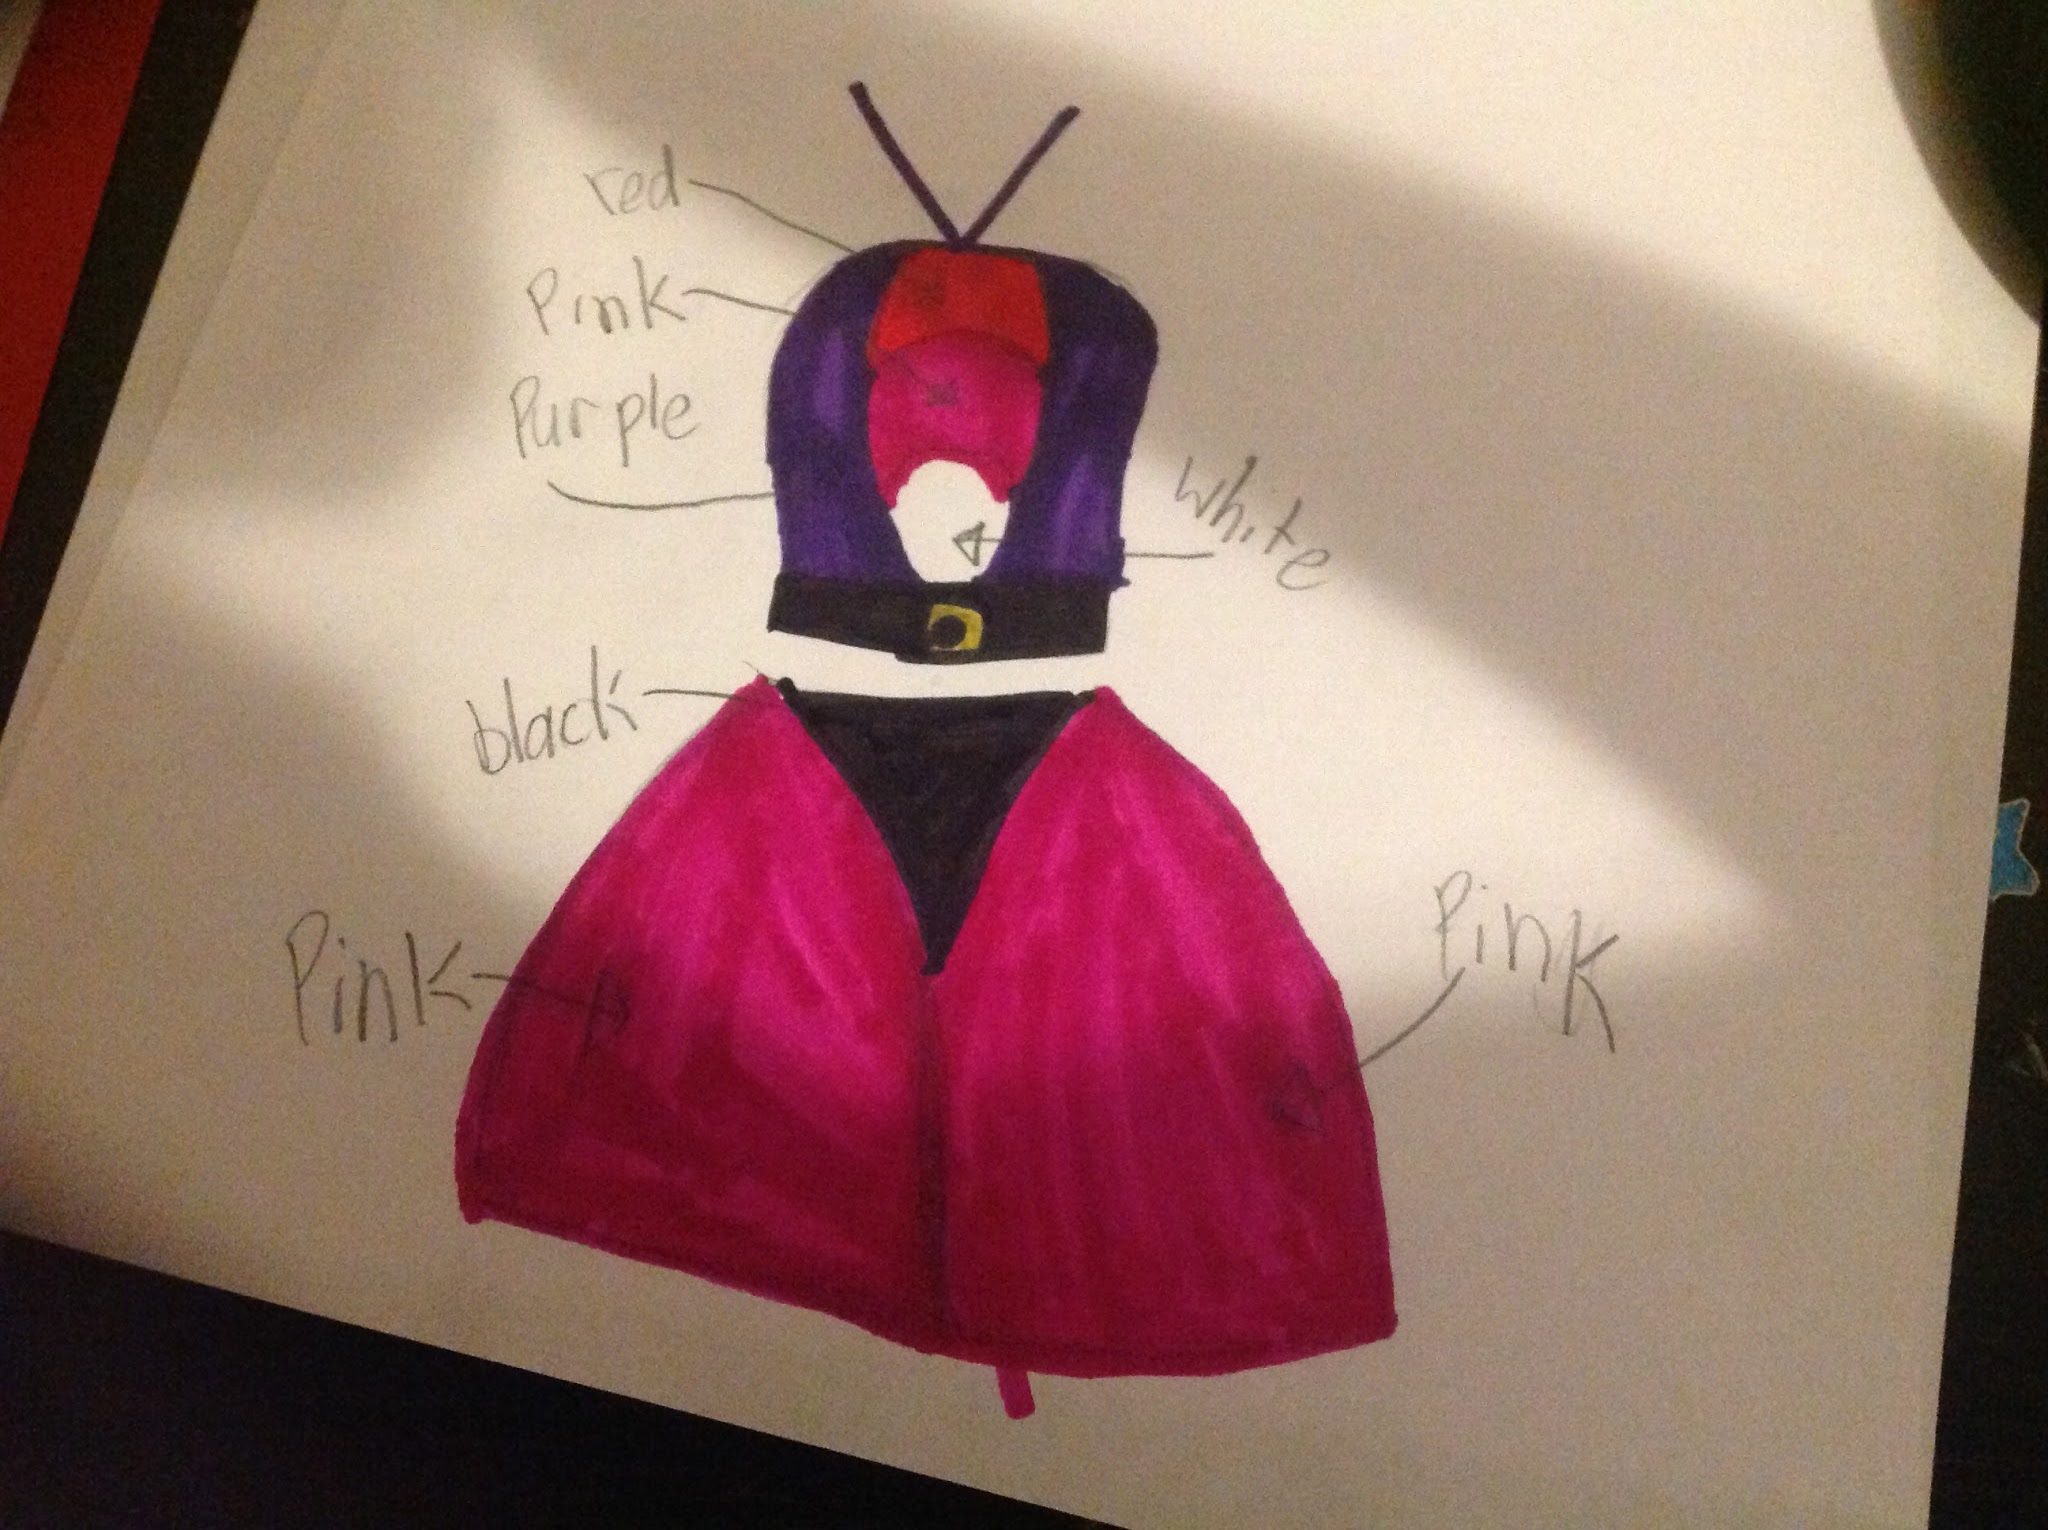 red
Pink
Purple
white
black
Pink
Pink